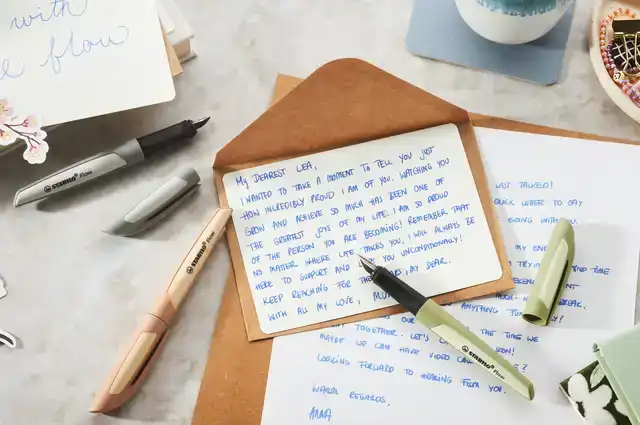 with
flow
STABILO Flow
STABILO Flow
STABILO Flow
MY DEAREST LEA,
I WANTED TO TAKE A MOMENT TO TELL YOU JUST
HOW INCREDIBLY PROUD I AM OF YOU. WATCHING YOU
GROW AND ACHIEVE SO MUCH HAS BEEN ONE OF
THE GREATEST JOYS OF MY LIFE. I AM SO PROUD
OF THE PERSON YOU ARE BECOMING! REMEMBER THAT
NO MATTER WHERE LIFE TAKES YOU, I WILL ALWAYS BE
HERE TO SUPPORT AND YOU UNCONDITIONALLY!
KEEP REACHING FOR THE MY DEAR.
WITH ALL MY LOVE,
LAST TALKED!
QUICK LETTER TO SAY
GOING WITH YOU.
MY
AND TIME
ANYTHING
OUR THE TIME WE
TOGETHER. LET'S
MAYBE WE CAN HAVE VIDEO CALL SOON!
LOOKING FORWARD TO HEARING FROM YOU.
WARM REGARDS,
ANNA